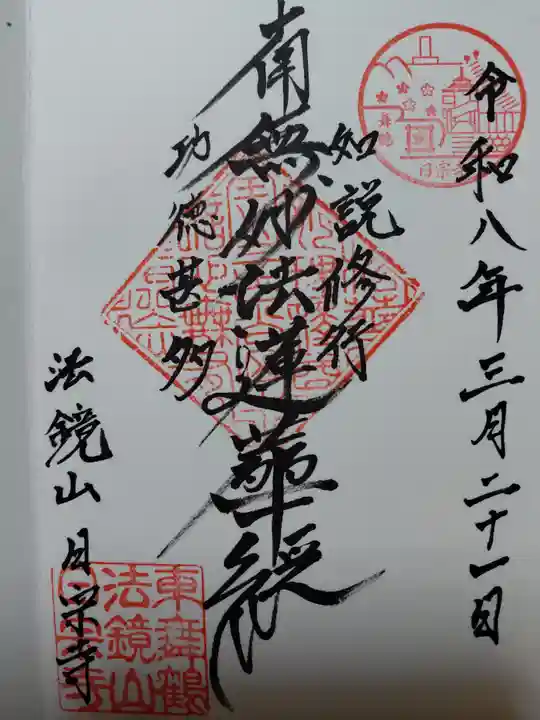 令和八年三月二十一日
如説修行
南無妙法蓮華経
功徳甚多
法鏡山 日宗寺
東舞鶴
法鏡山
日宗寺
舞鶴
日宗寺